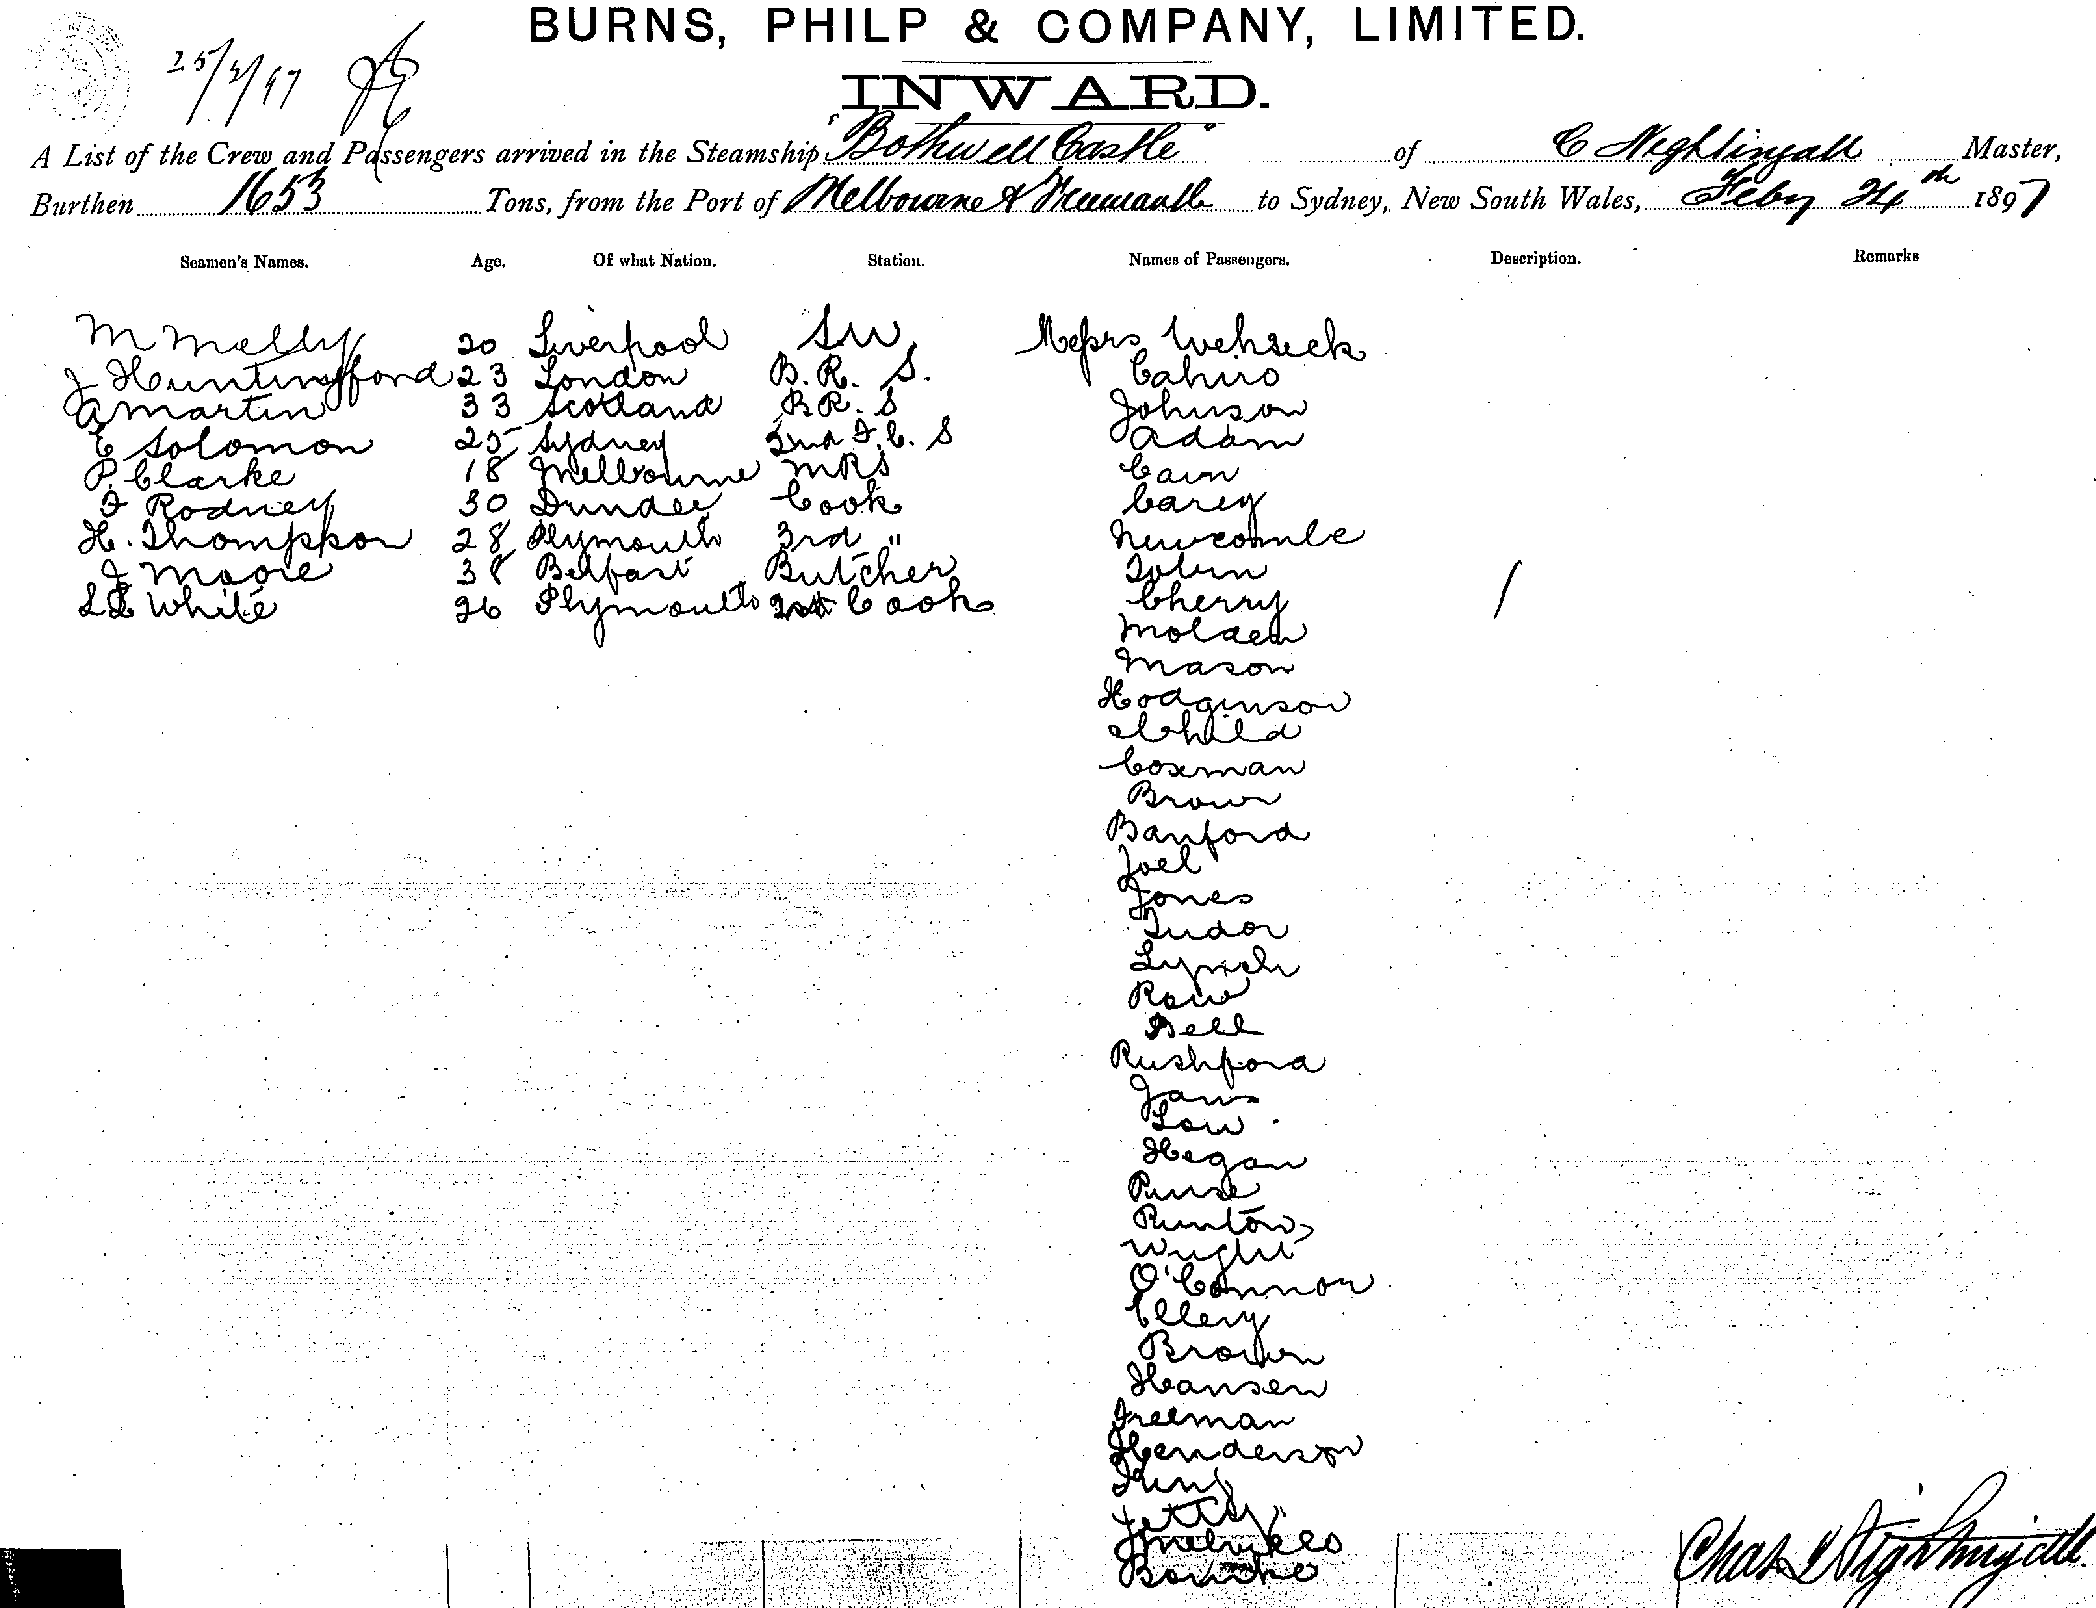 BURNS, PHILP & COMPANY, LIMITED.
25/2/97
INWARD.
A List of the Crew and Passengers arrived in the Steamship "Bothwell Castle" of C Nightingall Master,
Burthen 1653 Tons, from the Port of Melbourne & Freemantle to Sydney, New South Wales, Feby 24th 1897
Seamen's Names. Age. Of what Nation. Station. Names of Passengers. Description. Remarks
M Melly 20 Liverpool Messrs
J Huntingford 23 London B. R. S.
A Martin 33 Scotland B R. S Johnson
E Solomon 25 Sydney 2nd S Adam
P. Clarke 18 Melbourne M R S Cain
Rodney 30 Dundee Cook Carey
H. Thompson 28 Plymouth 3rd " Newcombe
J Moore 38 Belfast Butcher Tobin
White 26 Plymouth Cook Cherry /
Molden
Mason
Hodginson
Child
Coxman
Brown
Banford
Joel
Jones
Tudor
Lynch
Row
Bell
Rushford
Jans
Low
Hegan
Purse
Runton
Wright
O'Connor
Ellery
Brown
Hansen
Freeman
Henderson
King
Chas Nightingall